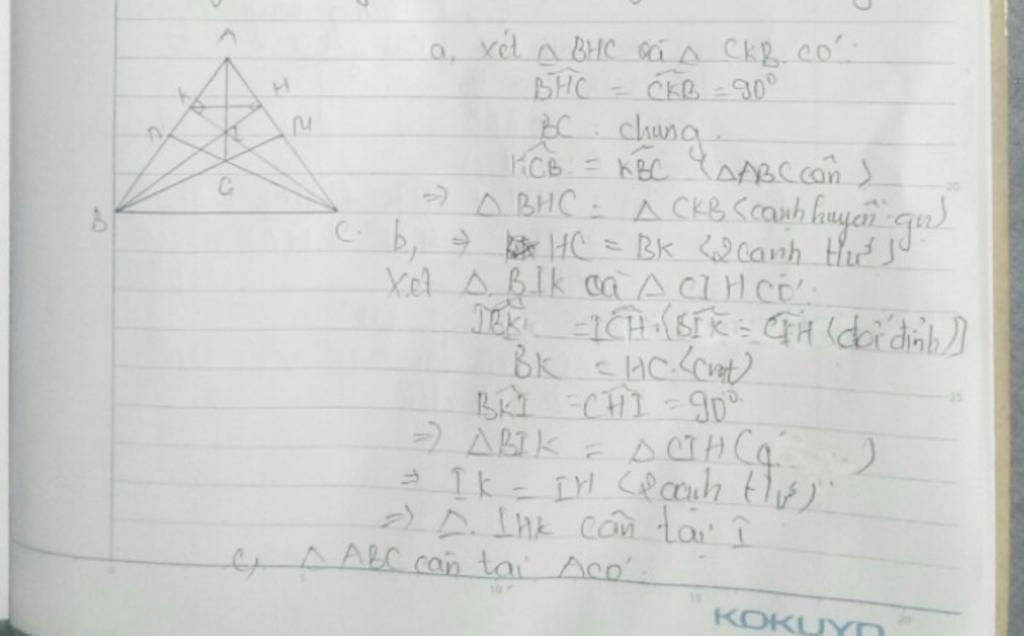 A
K H
N I M
G
B C
a, xét △ BHC và △ CKB có:
BHC = CKB = 90°
BC : chung
HCB = KBC (△ABC cân)
⇒ △ BHC = △ CKB (cạnh huyền-gn)
b, ⇒ HC = BK (2 cạnh tứ)
Xét △ BIK và △ CIH có:
IBK = ICH (BIK = CIH (đối đỉnh))
BK = HC (cmt)
BKI = CHI = 90°
⇒ △BIK = △CIH (g )
⇒ IK = IH (2 cạnh tứ)
⇒ △ IHK cân tại I
c, △ ABC cân tại A có:
KOKUYO